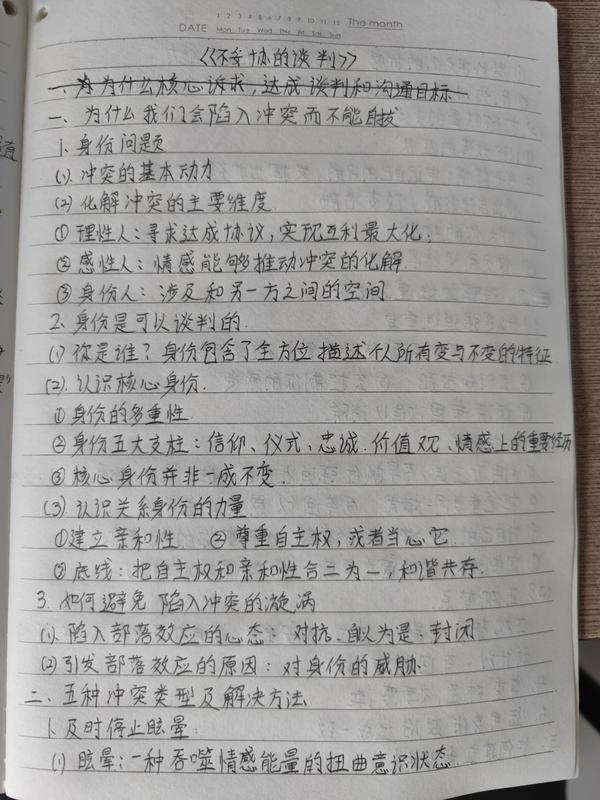 1 2 3 4 5 6 7 8 9 10 11 12 The month
DATE Mon Tue Wed Thu Fri Sat Sun
《不妥协的谈判》
一、为什么核心诉求,达成谈判和沟通目标
一、为什么我们会陷入冲突而不能自拔
1. 身份问题
(1). 冲突的基本动力
(2) 化解冲突的主要维度
① 理性人:寻求达成协议,实现互利最大化;
② 感性人:情感能够推动冲突的化解.
③ 身份人:涉及和另一方之间的空间
2. 身份是可以谈判的.
(1) 你是谁?身份包含了全方位描述个人所有变与不变的特征
(2). 认识核心身份.
① 身份的多重性.
② 身份五大支柱:信仰、仪式、忠诚.价值观、情感上的重要经历
③ 核心身份并非一成不变.
(3) 认识关系身份的力量
①建立亲和性. ② 尊重自主权,或者当心它.
③ 底线:把自主权和亲和性合二为一,和谐共存.
3. 如何避免陷入冲突的漩涡
(1). 陷入部落效应的心态:对抗、自以为是、封闭
(2) 引发部落效应的原因:对身份的威胁.
二、五种冲突类型及解决方法
1. 及时停止眩晕:
(1) 眩晕:一种吞噬情感能量的扭曲意识状态